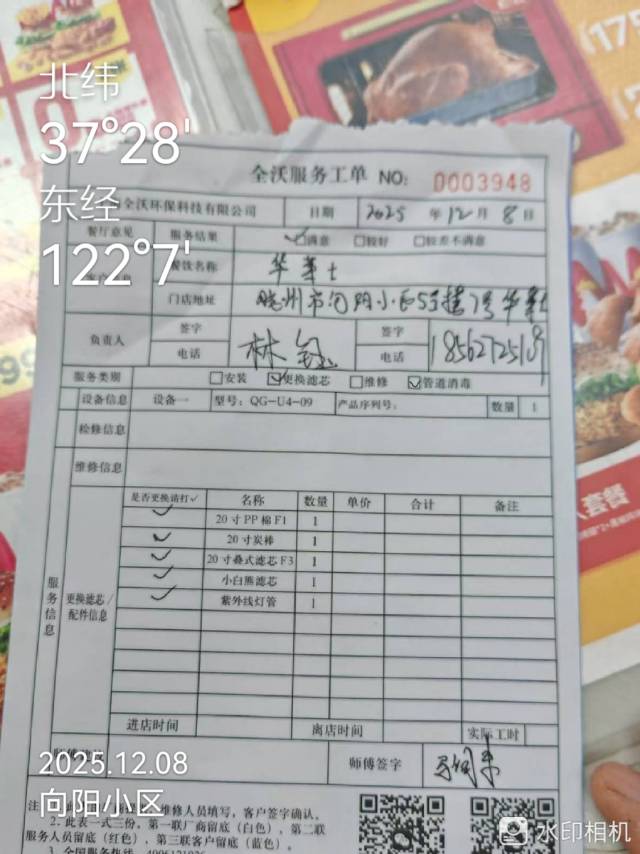 北纬
37°28'
东经
122°7'
全沃服务工单 NO: 0003948
全沃环保科技有限公司 日期 2025 年 12 月 8 日
餐厅意见 服务结果 ☑满意 □较好 □较差不满意
餐饮名称 华莱士
门店地址 市向阳小区5号楼7号华莱士
负责人 签字 林 签字
电话 电话
服务类别 □安装 ☑更换滤芯 □维修 ☑管道消毒
设备信息 设备一 型号: QG-U4-09 产品序列号: 数量 1
检修信息
维修信息
服务信息
更换滤芯/
配件信息
是否更换请打✓ 名称 数量 单价 合计 备注
✓ 20寸PP棉F1 1
✓ 20寸炭棒 1
✓ 20寸叠式滤芯F3 1
✓ 小白熊滤芯 1
✓ 紫外线灯管 1
进店时间 离店时间 实际工时
师傅签字
2025.12.08
向阳小区
维修人员填写，客户签字确认。
2、此表一式三份，第一联厂商留底（白色），第二联
服务人员留底（红色），第三联客户留底（蓝色）。
3、全国服务热线
水印相机